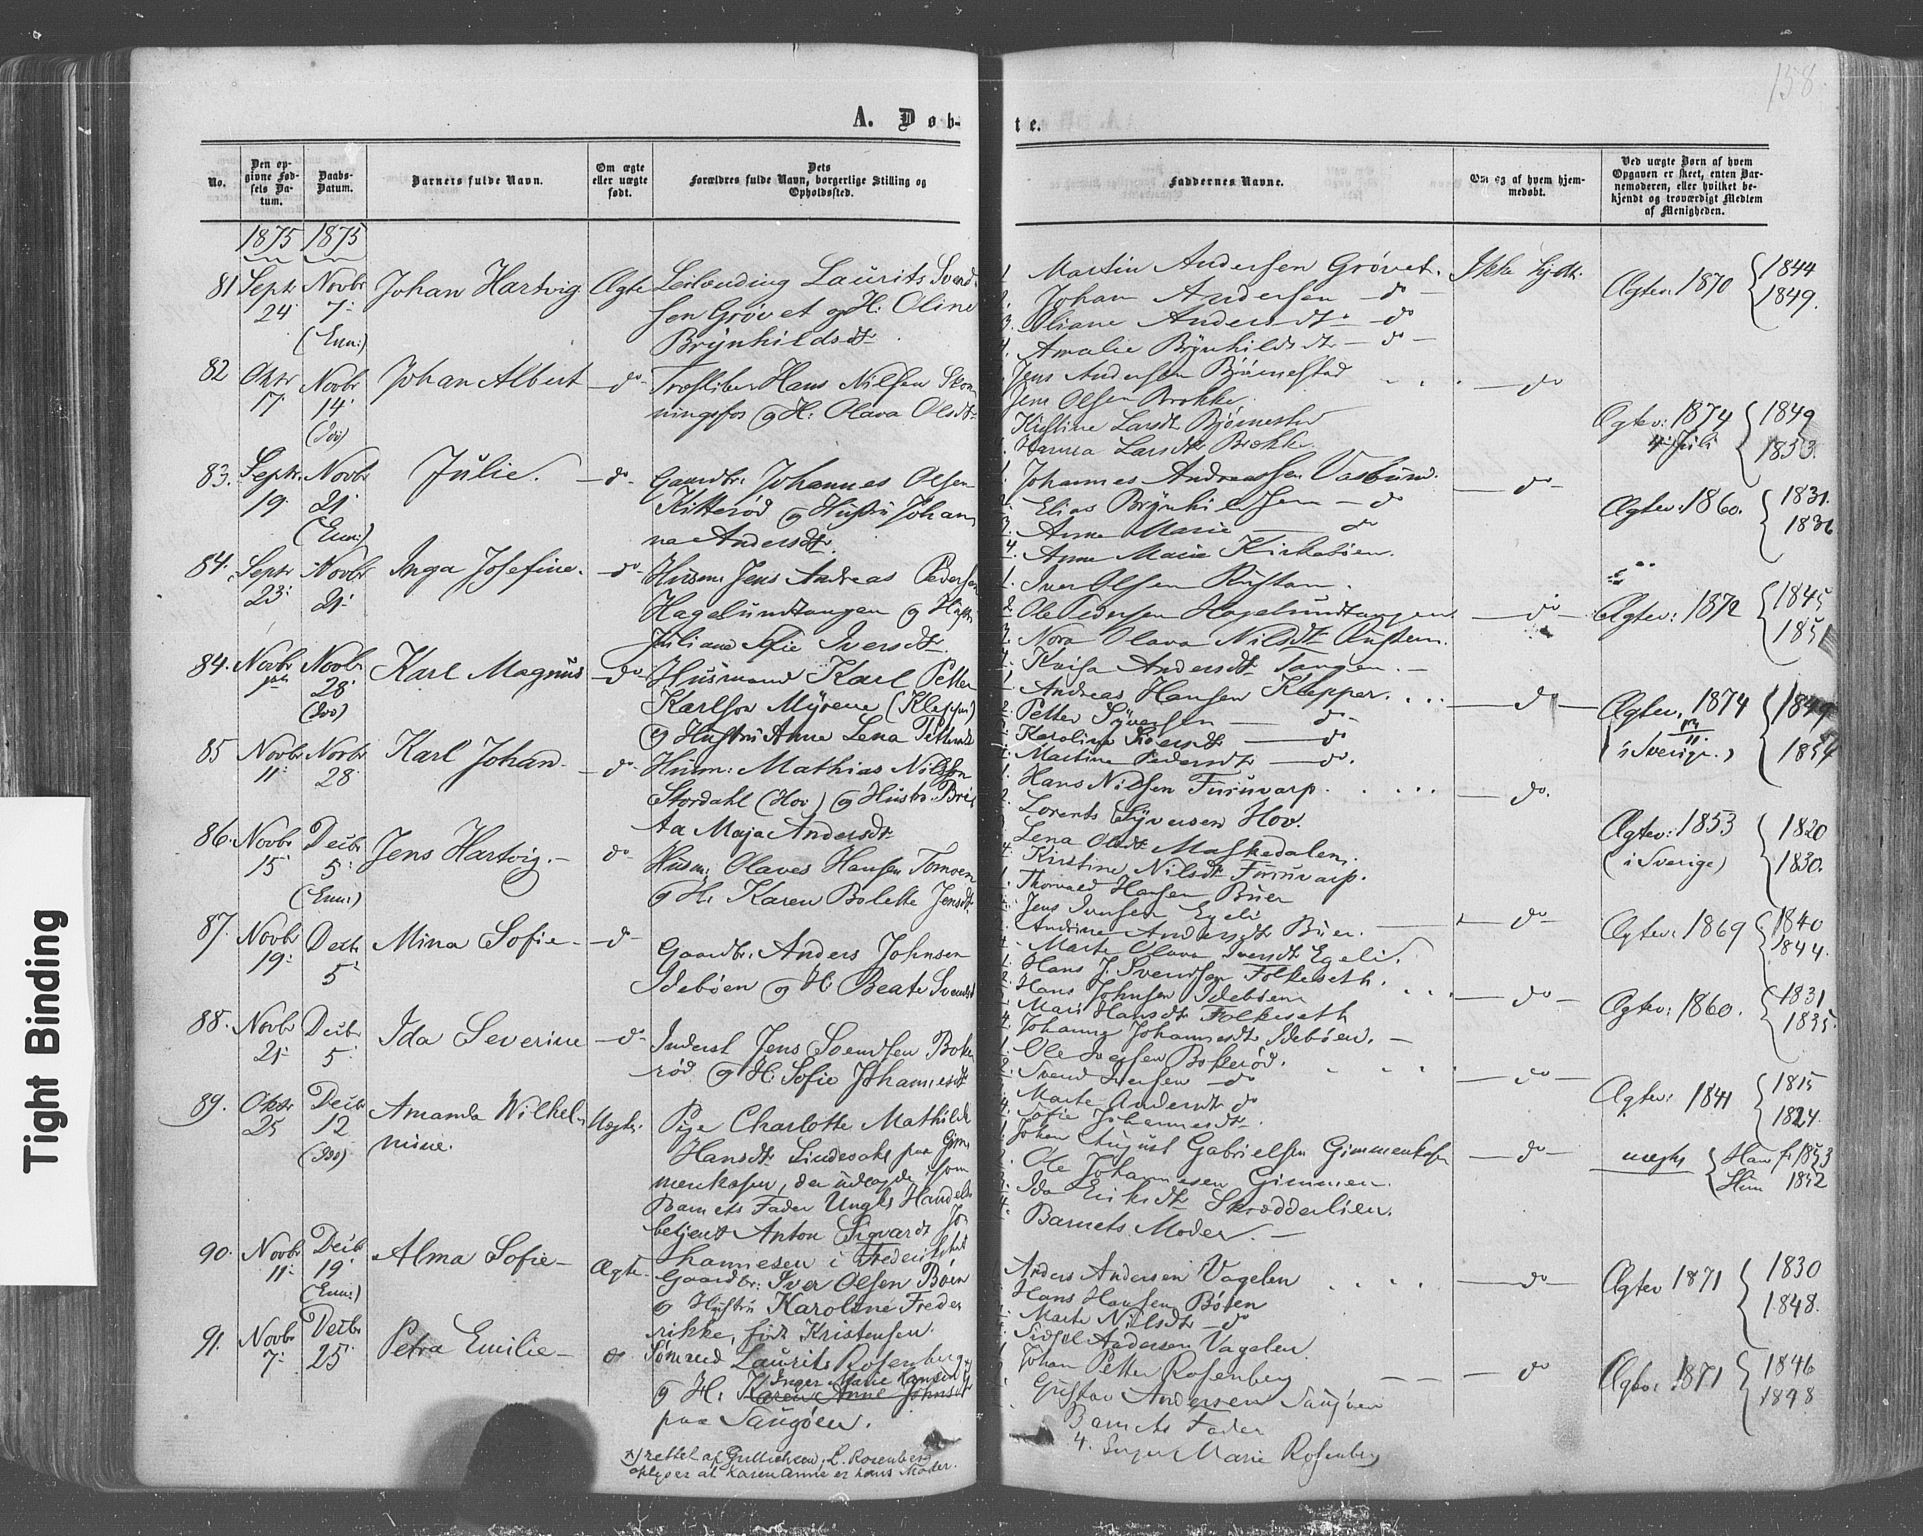 158.
A. Døb-
te.
No.
Den op-
givne Fød-
sels Da-
tum.
Daabs-
Datum.
Barnets fulde Navn.
Om ægte
eller uægte
født.
Dets
Forældres fulde Navn, borgerlige Stilling og
Opholdssted.
Faddernes Navne.
Om og af hvem hjem-
medøbt.
Ved uægte Børn af hvem
Opgaven er skeet, enten Bar-
nemoderen, eller hvilket be-
kjendt og troværdigt Medlem
af Menigheden.
1875 1875
81 Septr 24 Novbr 7 (Enn:) Johan Hartvig Ægte
Leilænding Laurits Svend-
sen Grøvet og H: Oline
Brynhildsdtr
1. Martin Andersen Grøvet.
2. Johan Andersen — do —
3. Oliane Andersdtr — do
4. Amalie Brynhildsdtr — do —
Ikke hjdt.
Ægtev: 1870 { 1844
1849.
82 Oktr 17 Novbr 14 (Ido) Johan Albert — do —
Træsliber Hans Nilsen Skon-
ningsfos og H: Olava Olsdtr
Jens Andersen Bjørnestad
Jens Olsen Brække.
Kristine Larsdtr Bjørnestad
Hanna Larsdtr Brække.
— do
Ægtev: 1874 { 1849
4 Juli 1853.
83. Septr. 19. Novbr 21 (Enn:) Julie. — do —
Gaardbr: Johannes Olsen
Kitterød og Hustru Johan-
na Andersdtr.
1. Johannes Andreassen Vasbund.
2. Elias Brynhildsen — do
3. Anne Marie — do
4. Anne Marie Kirkebøen.
— do —
Ægtev: 1860. { 1831.
1836
84. Septr 23. Novbr 21. Inga Josefine. — do —
Husm: Jens Andreas Pedersen
Hagelundtangen og Hustru
Juliane Sofie Iversdtr.
1. Iver Olsen Rustan.
2. Ole Pedersen Hagelundtangen
3. Nora Olava Nilsdtr Rustan.
4. Kaisa Andersdtr Tangen. —
— do —
Ægtev: 1872 { 1845
1851
84. Novbr Novbr 28 (Ido) Karl Magnus — do —
Husmand Karl Petter
Karlson Myrene (Klepper)
og Hustru Anne Lena Pettersdtr
1. Andreas Hansen Klepper.
2. Petter Syversen — do —
3. Karoline — do
4. Martine Pedersdtr — do.
— do —
Ægtev. 1874 { 1849
(i Sverige.) 1854
85 Novbr 11. Novbr 28. Karl Johan — do.
Husm: Mathias Nilsson
Stordahl (Hov) og Hustru Bri-
ta Maja Andersdtr
1. Hans Nilsen Furuvarp.
2. Lorents Syversen Hov.
3. Lena Olsdtr Maskedalen.
4. Kristine Nilsdtr Furuvarp.
— do.
Ægtev: 1853 { 1820
(i Sverige) 1830.
86. Novbr 15 Decbr 5. (Enn:) Jens Hartvig. — do
Husm: Olaves Hansen Tomoen
og H: Karen Bolette Jensdtr
1. Thorvald Hansen Buer
2. Jens Iversen Egeli
3. Andrine Andersdtr Buer.
4. Marte Olava Svendsdtr Egeli.
— do —
Ægtev: 1869 { 1840
1844.
87. Novbr 19. Decbr 5. Mina Sofie — do
Gaardbr. Anders Johnsen
Idebøen og H: Beate Svendsdtr
1. Hans J. Svendsen Folkeseth.
2. Hans Johnsen Idebøen
3. Mari Hansdtr Folkeseth
4. Johanne Johannesdtr Idebøen. —
— do —
Ægtev: 1860. { 1831
1835.
88. Novbr 21. Decbr 5. Ida Severine — do —
Inderst Jens Svendsen Boke-
rød og H: Sofie Johannesdtr
1. Ole Svensen Bokerød.
2. Svend Iversen — do
3. Marte Andersdtr do
4. Sofie Johannesdtr.
— do —
Ægtev: 1841 { 1815
1824.
89. Oktr 25 Decbr 12 (Ido) Amanda Wilhel-
mine. Uægte.
Pige Charlotte Mathilde
Hansdtr Lindesahl paa Gim-
menkasen, der udlagde som
Barnets Fader Ungk: Handels-
betjent Anton Sigvardt Jo-
hannesen i Frederikstad
1. Johan August Gabrielsen Gimmenkasen
2. Ole Johannesen Gimmen.
3. Ida Eriksdtr Skrædderlien.
4. Barnets Moder. —
— do —
uægte { Han f. 1853
Hun 1852
90. Novbr 11. Decbr 19. (Enn:) Alma Sofie — Ægte
Gaardbr: Iver Olsen Bøen
og Hustru Karoline Frede-
rikke, født Kristensen.
Anders Andersen Vagelen
Hans Hansen Bøten
Marte Nilsdtr — do
Sidsel Andersen Vagelen
— do —
Ægtev 1871 { 1830
1848.
91. Novbr 7. Decbr 25 Petra Emilie — do.
Sømand Laurits Rosenberg
Inger Marie Hansen
og H: Karen Anne Johnsdtr
paa Saugøen.
Johan Petter Rosenberg
Gustav Andersen Saugøen
Barnets Fader
4. Inger Marie Rosenberg
— do
Ægtev: 1871 { 1846
1848
x) rettet af Gullichsen, L. Rosenberg
oplyser at Karen Anne er hans Moder.
Tight Binding